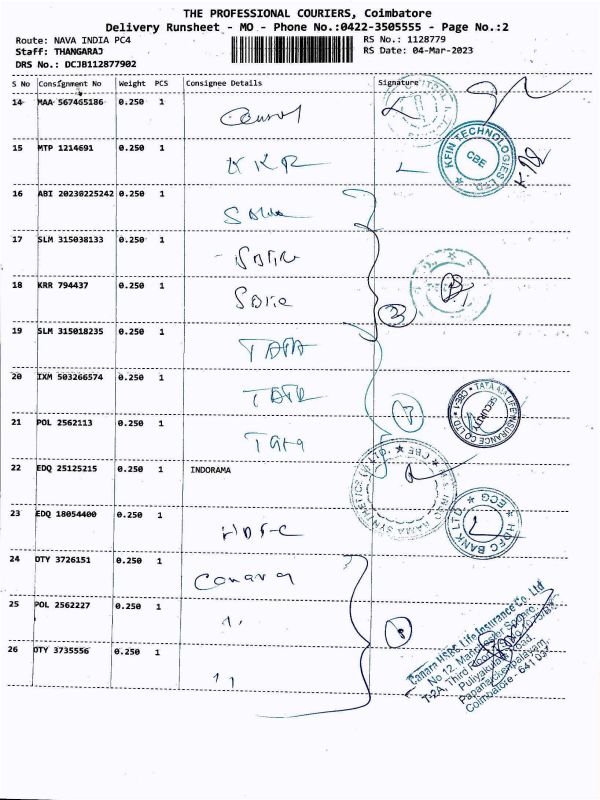 THE PROFESSIONAL COURIERS, Coimbatore
Delivery Runsheet - MO - Phone No.:0422-3505555 - Page No.:2
Route: NAVA INDIA PC4 RS No.: 1128779
Staff: THANGARAJ RS Date: 04-Mar-2023
DRS No.: DCJB112877902
S No Consignment No Weight PCS Consignee Details Signature
14 MAA 567465186 0.250 1
15 MTP 1214691 0.250 1 KKR
KFIN TECHNOLOGIES LTD CBE
16 ABI 20230225242 0.250 1
17 SLM 315038133 0.250 1
18 KRR 794437 0.250 1
19 SLM 315018235 0.250 1 TATA
20 IXM 503266574 0.250 1 TATA
21 POL 2562113 0.250 1 Tata
TATA AIA LIFE INSURANCE CO LTD CBE-1 SECURITY
22 EDQ 25125215 0.250 1 INDORAMA
23 EDQ 18054400 0.250 1 HDFC
HDFC BANK LTD ECG
24 DTY 3726151 0.250 1 Canara
25 POL 2562227 0.250 1 "
26 DTY 3735556 0.250 1 "
Canara HSBC Life Insurance Co. Ltd
No 12,
T-2A, Third Floor
Puliyakulam Road,
Papanaickenpalayam,
Coimbatore - 641 037